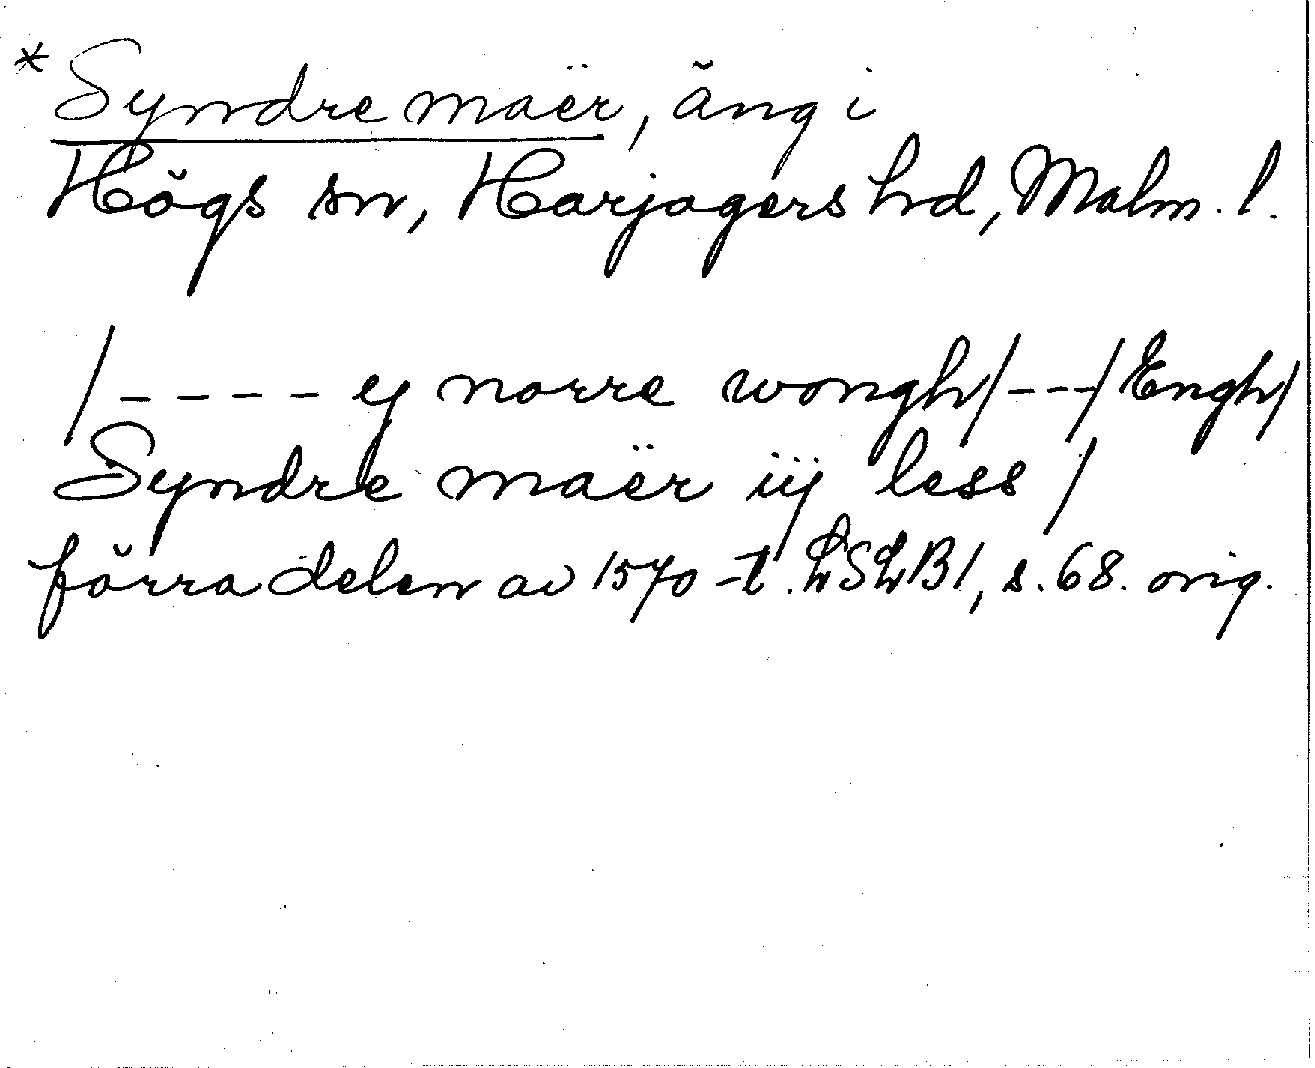 * Syndre maër, äng i
Högs sn, Harjagers hd, Malm. l.
/ - - - - - ej norre wongh / - - - / Engh /
Syndre maër iij less /
förra delen av 1570-t. LSLB1, s. 68. orig.